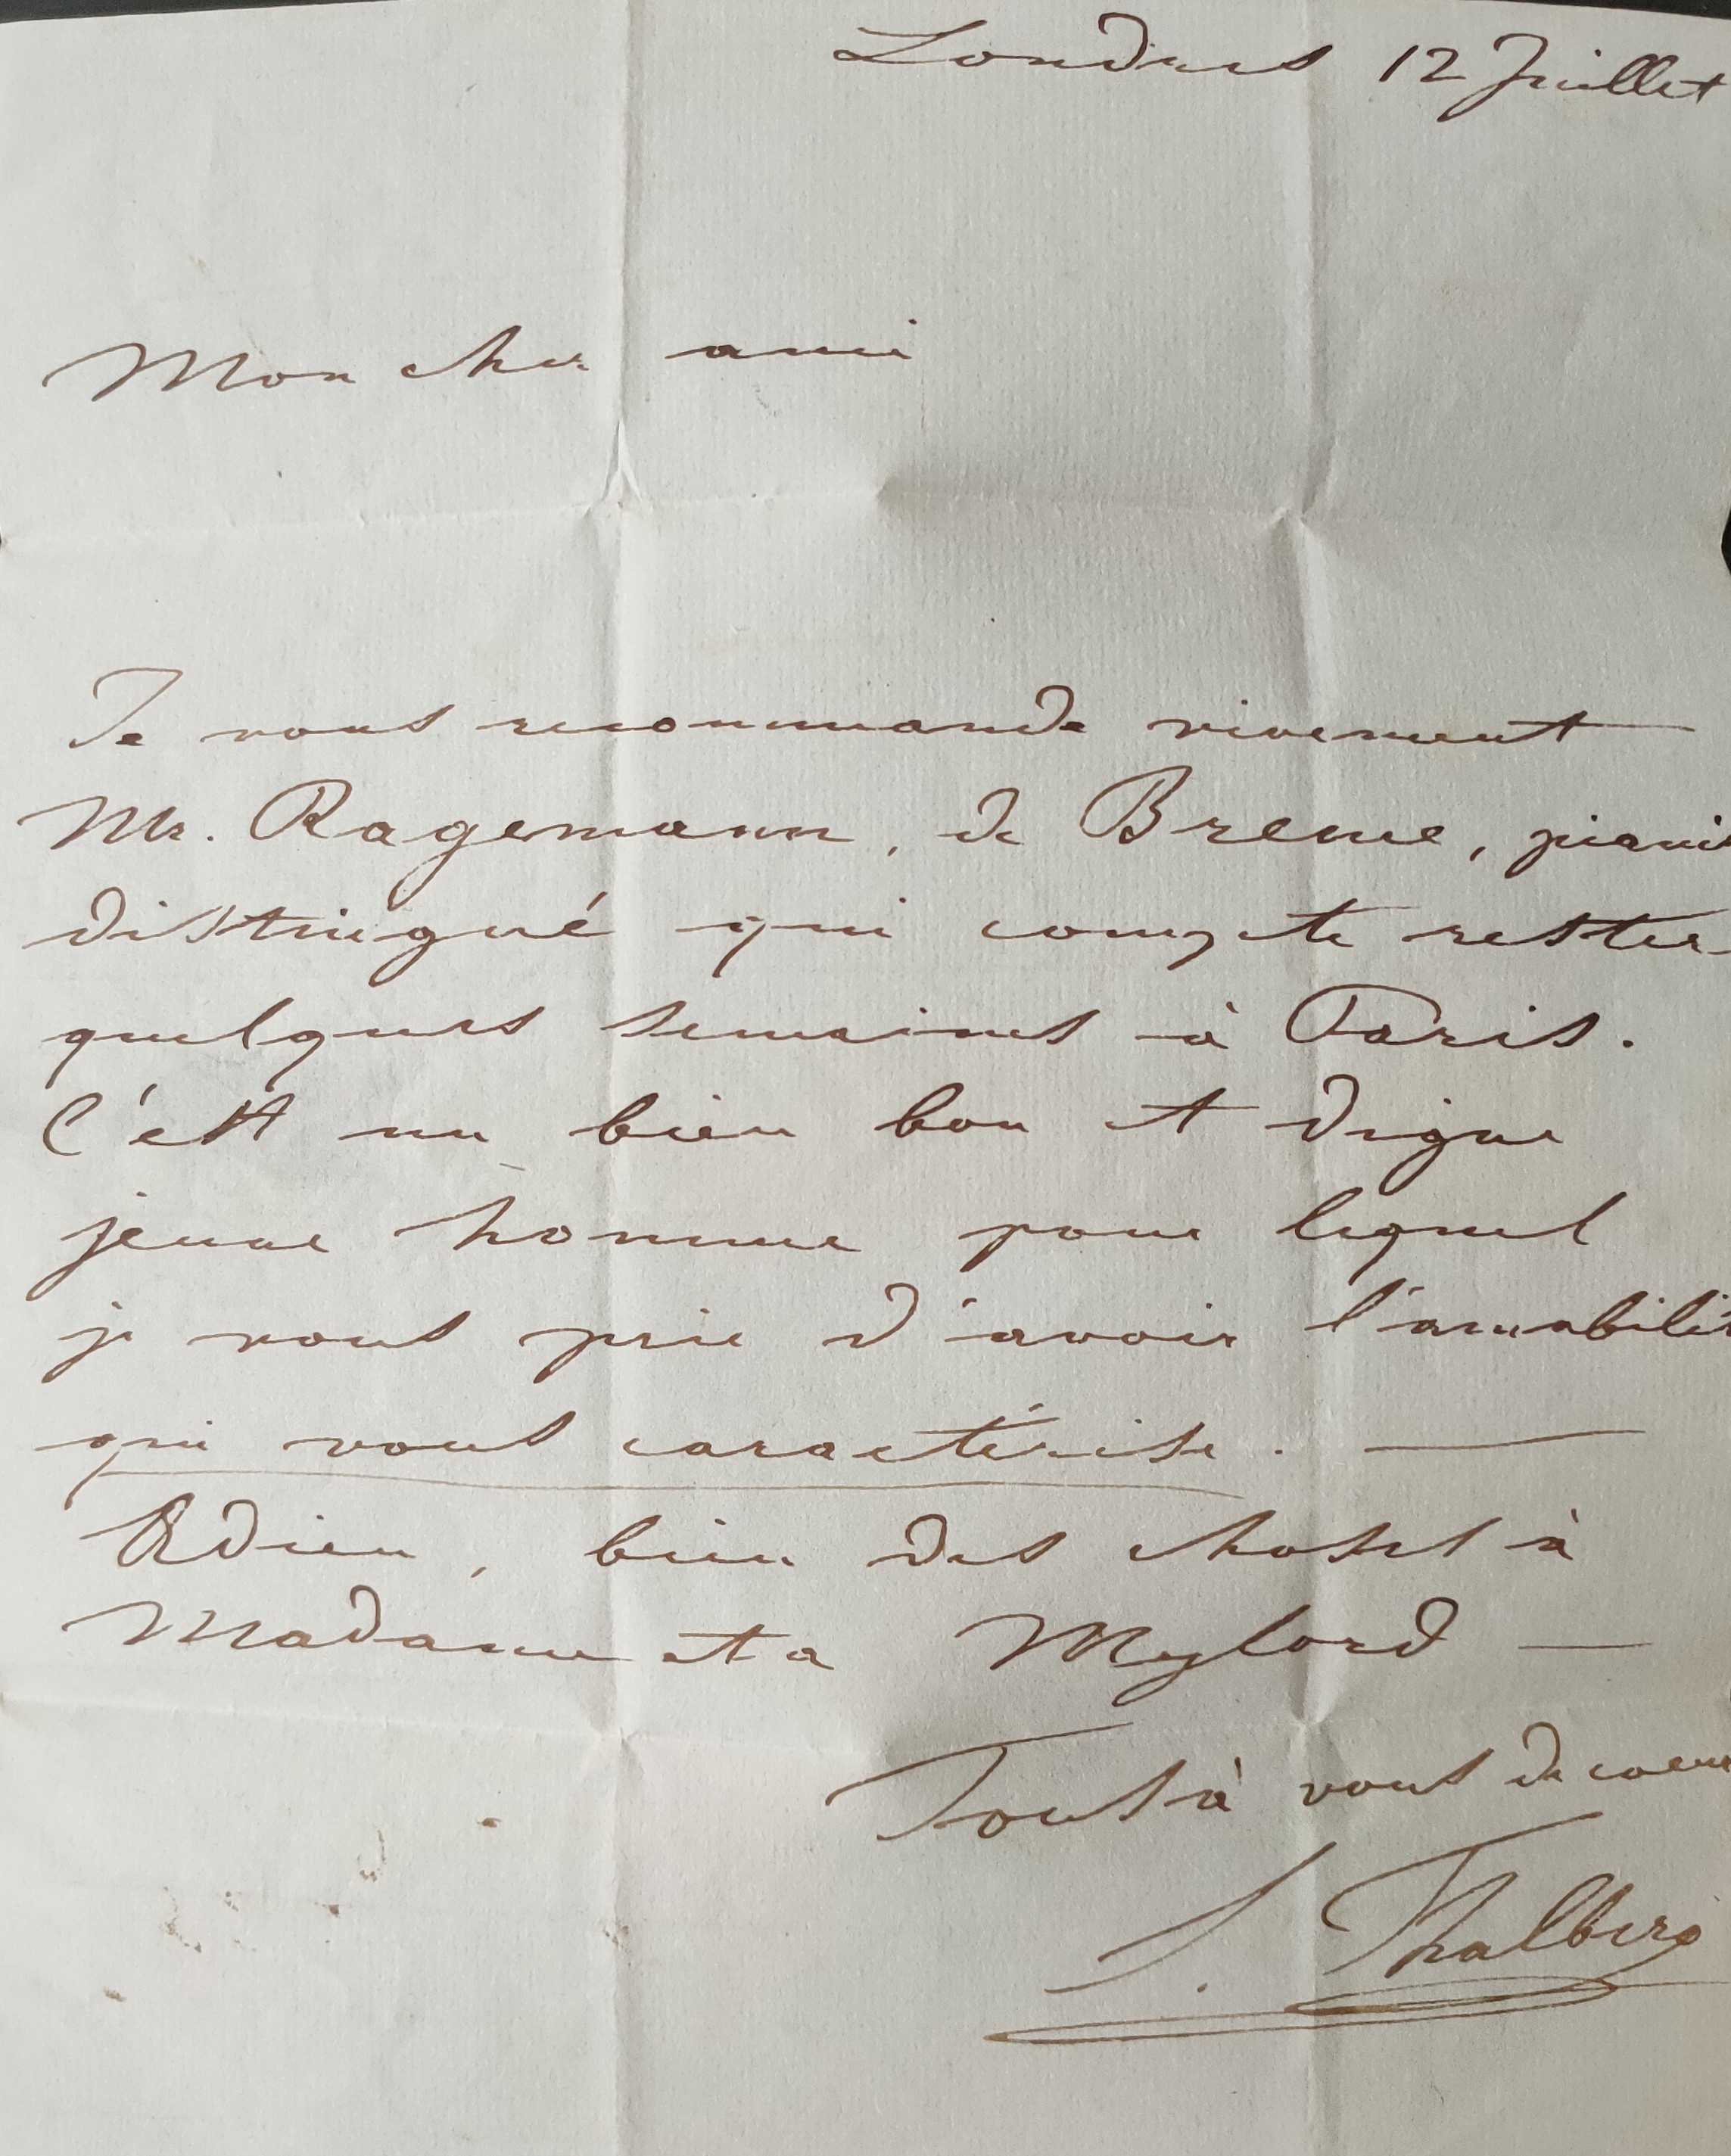 Londres 12 Juillet
Mon cher ami
Je vous recommande vivement
Mr. Ragemann, de Breme, pianis
distingué qui compte rester
quelques semaines à Paris.
C'est un bien bon et digne
jeune homme pour lequel
je vous prie d'avoir l'amabilit
qui vous caractérise. —
Adieu, bien des choses à
Madame et a Mylord —
Tout à vous de coeur
S. Thalberg